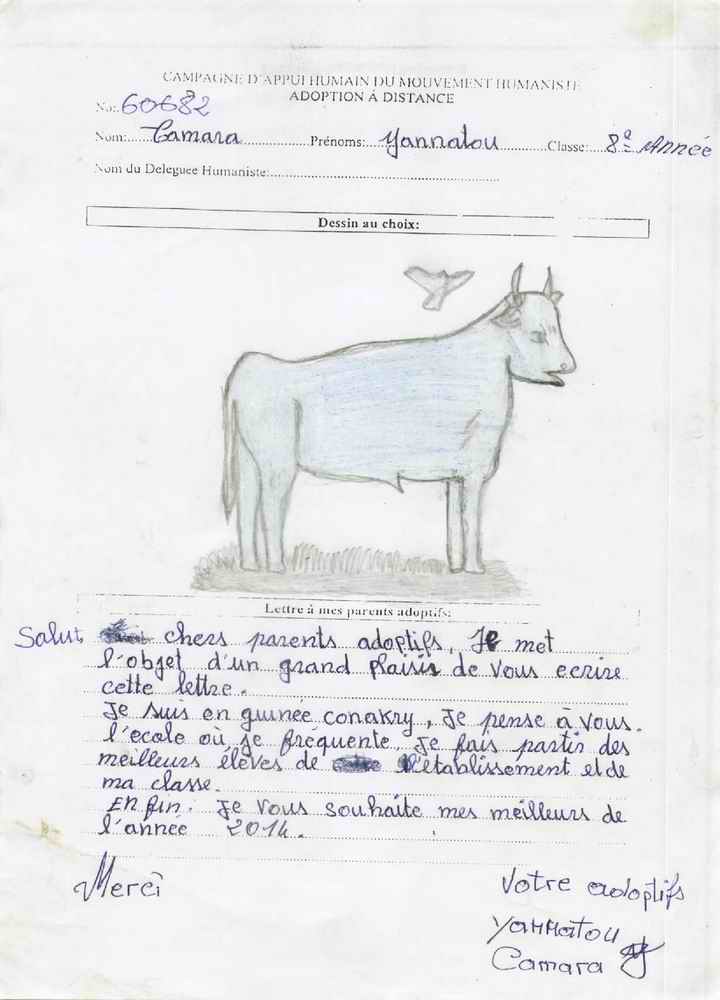 CAMPAGNE D'APPUI HUMAIN DU MOUVEMENT HUMANISTE
ADOPTION Á DISTANCE
No: 60682
Nom: Camara Prénoms: Yannatou Classe: 8è Année
Nom du Deleguee Humaniste:
Dessin au choix:
Lettre à mes parents adoptifs:
Salut chers parents adoptifs, Je met
l'objet d'un grand plaisir de vous ecrire
cette lettre.
Je suis en guinée conakry, Je pense à vous.
l'école où je fréquente, Je fais partir des
meilleurs élèves de l'établissement et de
ma classe.
En fin. Je vous souhaite mes meilleurs de
l'année 2014.
Merci
Votre adoptifs
Yannatou
Camara